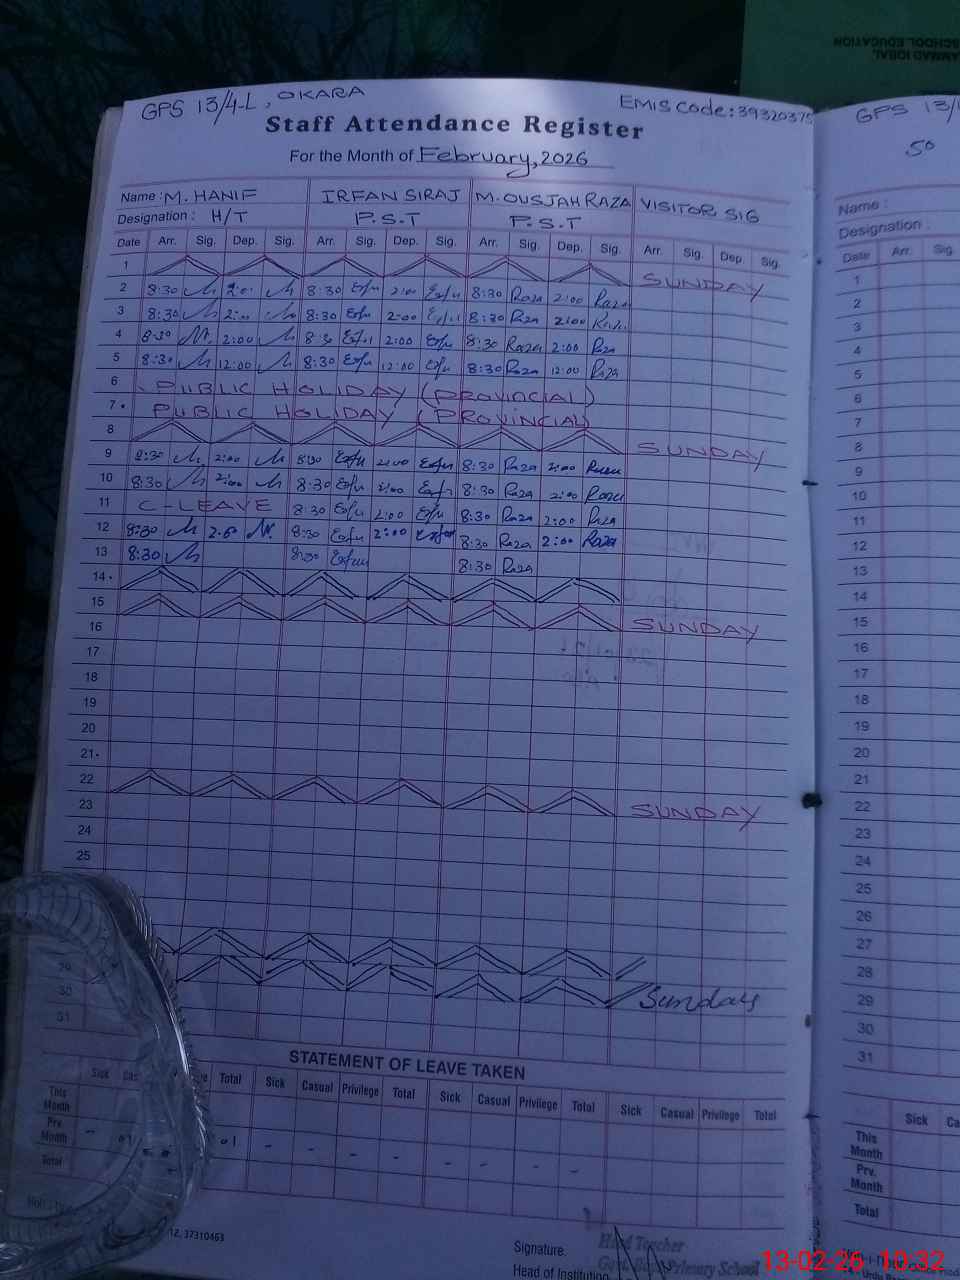 GPS 13/4-L, OKARA
EMIS Code: 39320375
Staff Attendance Register
For the Month of February, 2026
Name: M. HANIF IRFAN SIRAJ M. OUSJAH RAZA VISITOR SIG
Designation: H/T P.S.T P.S.T
Date Arr. Sig. Dep. Sig. Arr. Sig. Dep. Sig. Arr. Sig. Dep. Sig. Arr. Sig. Dep. Sig.
1 SUNDAY
2 8:30 2:00 8:30 2:00 8:30 Raza 2:00 Raza
3 8:30 2:00 8:30 2:00 8:30 Raza 2:00 Raza
4 8:30 2:00 8:30 2:00 8:30 Raza 2:00 Raza
5 8:30 12:00 8:30 12:00 8:30 Raza 12:00 Raza
6 PUBLIC HOLIDAY (PROVINCIAL)
7. PUBLIC HOLIDAY (PROVINCIAL)
8 SUNDAY
9 8:30 2:00 8:30 2:00 8:30 Raza 2:00 Raza
10 8:30 2:00 8:30 2:00 8:30 Raza 2:00 Raza
11 C-LEAVE 8:30 2:00 8:30 Raza 2:00 Raza
12 8:30 2:00 8:30 2:00 8:30 Raza 2:00 Raza
13 8:30 8:30 8:30 Raza
14.
15 SUNDAY
16
17
18
19
20
21.
22 SUNDAY
23
24
25
29 Sunday
30
31
STATEMENT OF LEAVE TAKEN
Sick Total Sick Casual Privilege Total Sick Casual Privilege Total Sick Casual Privilege Total
This Month
Prv. Month - 01 01 - - - - - - - -
Total
12, 37310463
Signature.
Head of Institution
Head Teacher
Primary School
GPS 13/
50
Name :
Designation :
Date Arr. Sig.
1
2
3
4
5
6
7
8
9
10
11
12
13
14
15
16
17
18
19
20
21
22
23
24
25
26
27
28
29
30
31
Sick Ca
This Month
Prv. Month
Total
SCHOOL EDUCATION
13-02-26 10:32